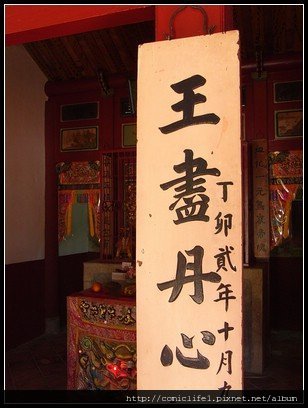 王盡丹心
丁卯貳年十月
http://comiclife1.pixnet.net/album